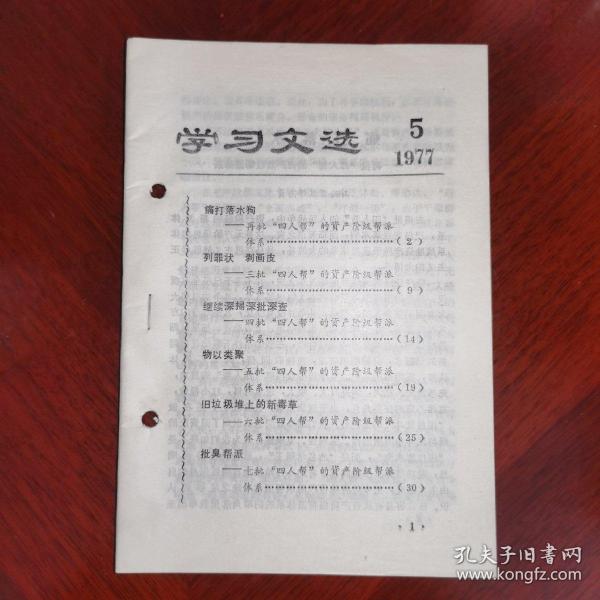 学习文选
5
1977
痛打落水狗
——再批“四人帮”的资产阶级帮派
体系……………………………(2)
列罪状 剥画皮
——三批“四人帮”的资产阶级帮派
体系……………………………(9)
继续深揭深批深查
——四批“四人帮”的资产阶级帮派
体系……………………………(14)
物以类聚
——五批“四人帮”的资产阶级帮派
体系……………………………(19)
旧垃圾堆上的新毒草
——六批“四人帮”的资产阶级帮派
体系……………………………(25)
批臭帮派
——七批“四人帮”的资产阶级帮派
体系……………………………(30)
·1·
孔夫子旧书网
www.kongfz.com